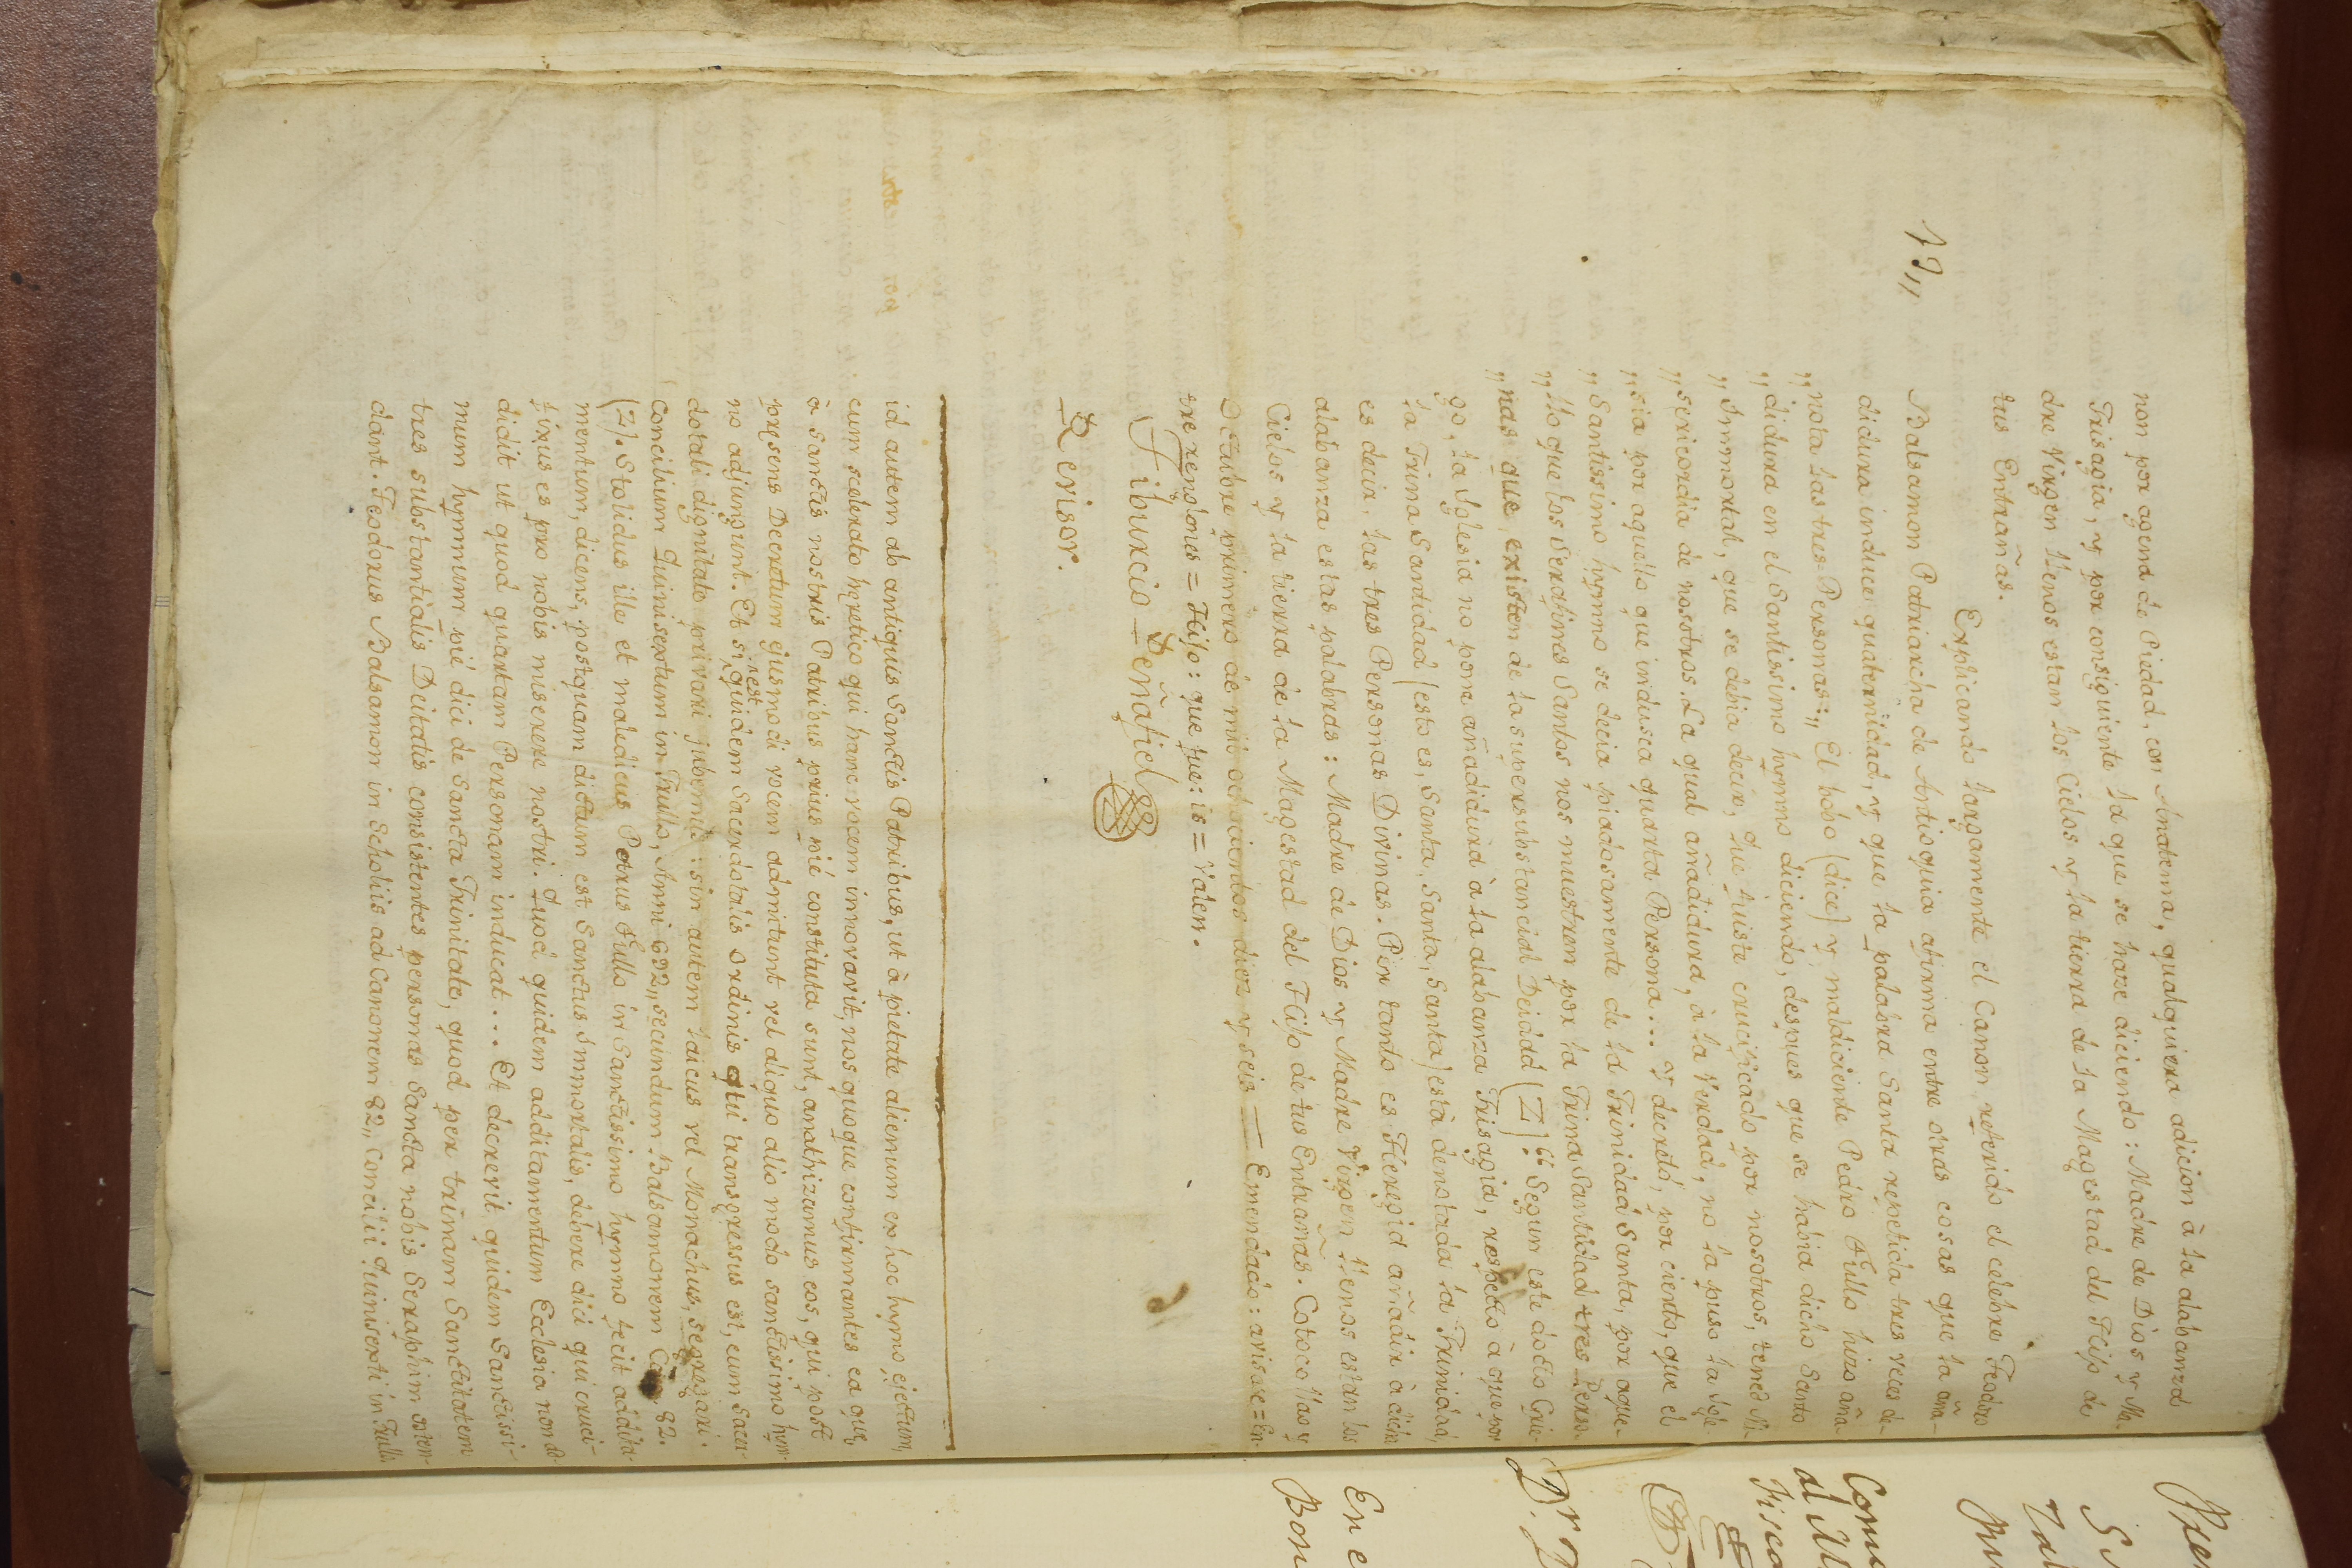 non por agena de Piedad, con Anatema, qualquiera adicion à la alabanza
Trisagia, y por consiguiente la que se haze diciendo: Madre de Dios y Ma-
dre Virgen llenos estan los Cielos y la tierra de la Magestad del Hijo de
tus Entrañas.
Explicando largamente el Canon referido el celebre Teodoro
13,, Balsamon Patriarcha de Antioquia afirma entre otras cosas que la aña-
didura induce quaternidad, y que la palabra Santa repetida tres veces de-
,, nota las tres Personas:,, El bobo (dice) y maldiciente Pedro Fullo hizo aña-
,, didura en el Santissimo hymno diciendo, despues que se habia dicho Santo
,, Immortal, que se debia decir, Que fuiste crucificado por nosotros, tened Mi-
,, sericordia de nosotros. La qual añadidura, à la Verdad, no la puso la Igle-
,, sia por aquello que indusca quarta Persona... Y decretó, por cierto, que el
,, Santissimo hymno se decia piadosamente de la Trinidad Santa, por aque-
,, llo que los Serafines Santos nos muestren por la Trina Santidad tres Perso-
,, nas que existen de la supersubstancial Deidad (Z)." Segun este docto Grie-
go, la Iglesia no pone añadidura à la alabanza Trisagia, respecto à que por
la Trina Santidad (esto es, Santa, Santa, Santa) està denotada la Trinidad,
es decir, las tres Personas Divinas. Por tanto es Heregia añadir à dicha
alabanza estas palabras: Madre de Dios y Madre Virgen llenos estan los
Cielos y la tierra de la Magestad del Hijo de tus Entrañas. Cotocollao y
Octubre primero de mil ochocientos diez y seis — Emendado: avisare = En-
tre renglones = Hijo: que fue: is = Valen.
Tiburcio Peñafiel
Revisor.
id autem ab antiquis Sanctis Patribus, ut à pietate alienum ex hoc hymo ejectum,
cum scelerato heretico qui hanc vocem innovavit, nos quoque confirmantes ea quę,
à Sanctis nostris Patribus prius pié constituta sunt, anathizamus eos, qui post
pręsens Decretum ejusmodi vocem admittunt vel aliquo alio modo sanctissimo hym-
no adjungunt. Et si quidem est Sacerdotalis Ordinis qui transgressus est, eum Sacer-
dotali dignitate privari jubemus: sin autem laicus vel Monachus, segregari.
Concilium Quinisextum in Trullo, Anni 692,, secundum Balsamonem Can. 82.
(Z). Stolidus ille et maledicus Petrus Fullo in Sanctissimo hymno fecit addita-
mentum, dicens, postquam dictum est Sanctus Immortalis, debere dici qui cruci-
fixus es pro nobis miserere nostri. Quod quidem additamentum Ecclesia non ad-
didit ut quod quartam Personam inducat... Et decrevit quidem Sanctissi-
mum hymnum pié dici de Sancta Trinitate, quod per trinam Sanctitatem
tres substantialis Deitatis consistentes personas Sancta nobis Seraphim osten-
dant. Teodorus Balsamon in Scholiis ad Canonem 82,, Concilii Quinisexti in Trullo.
Dr.
En e
Bon